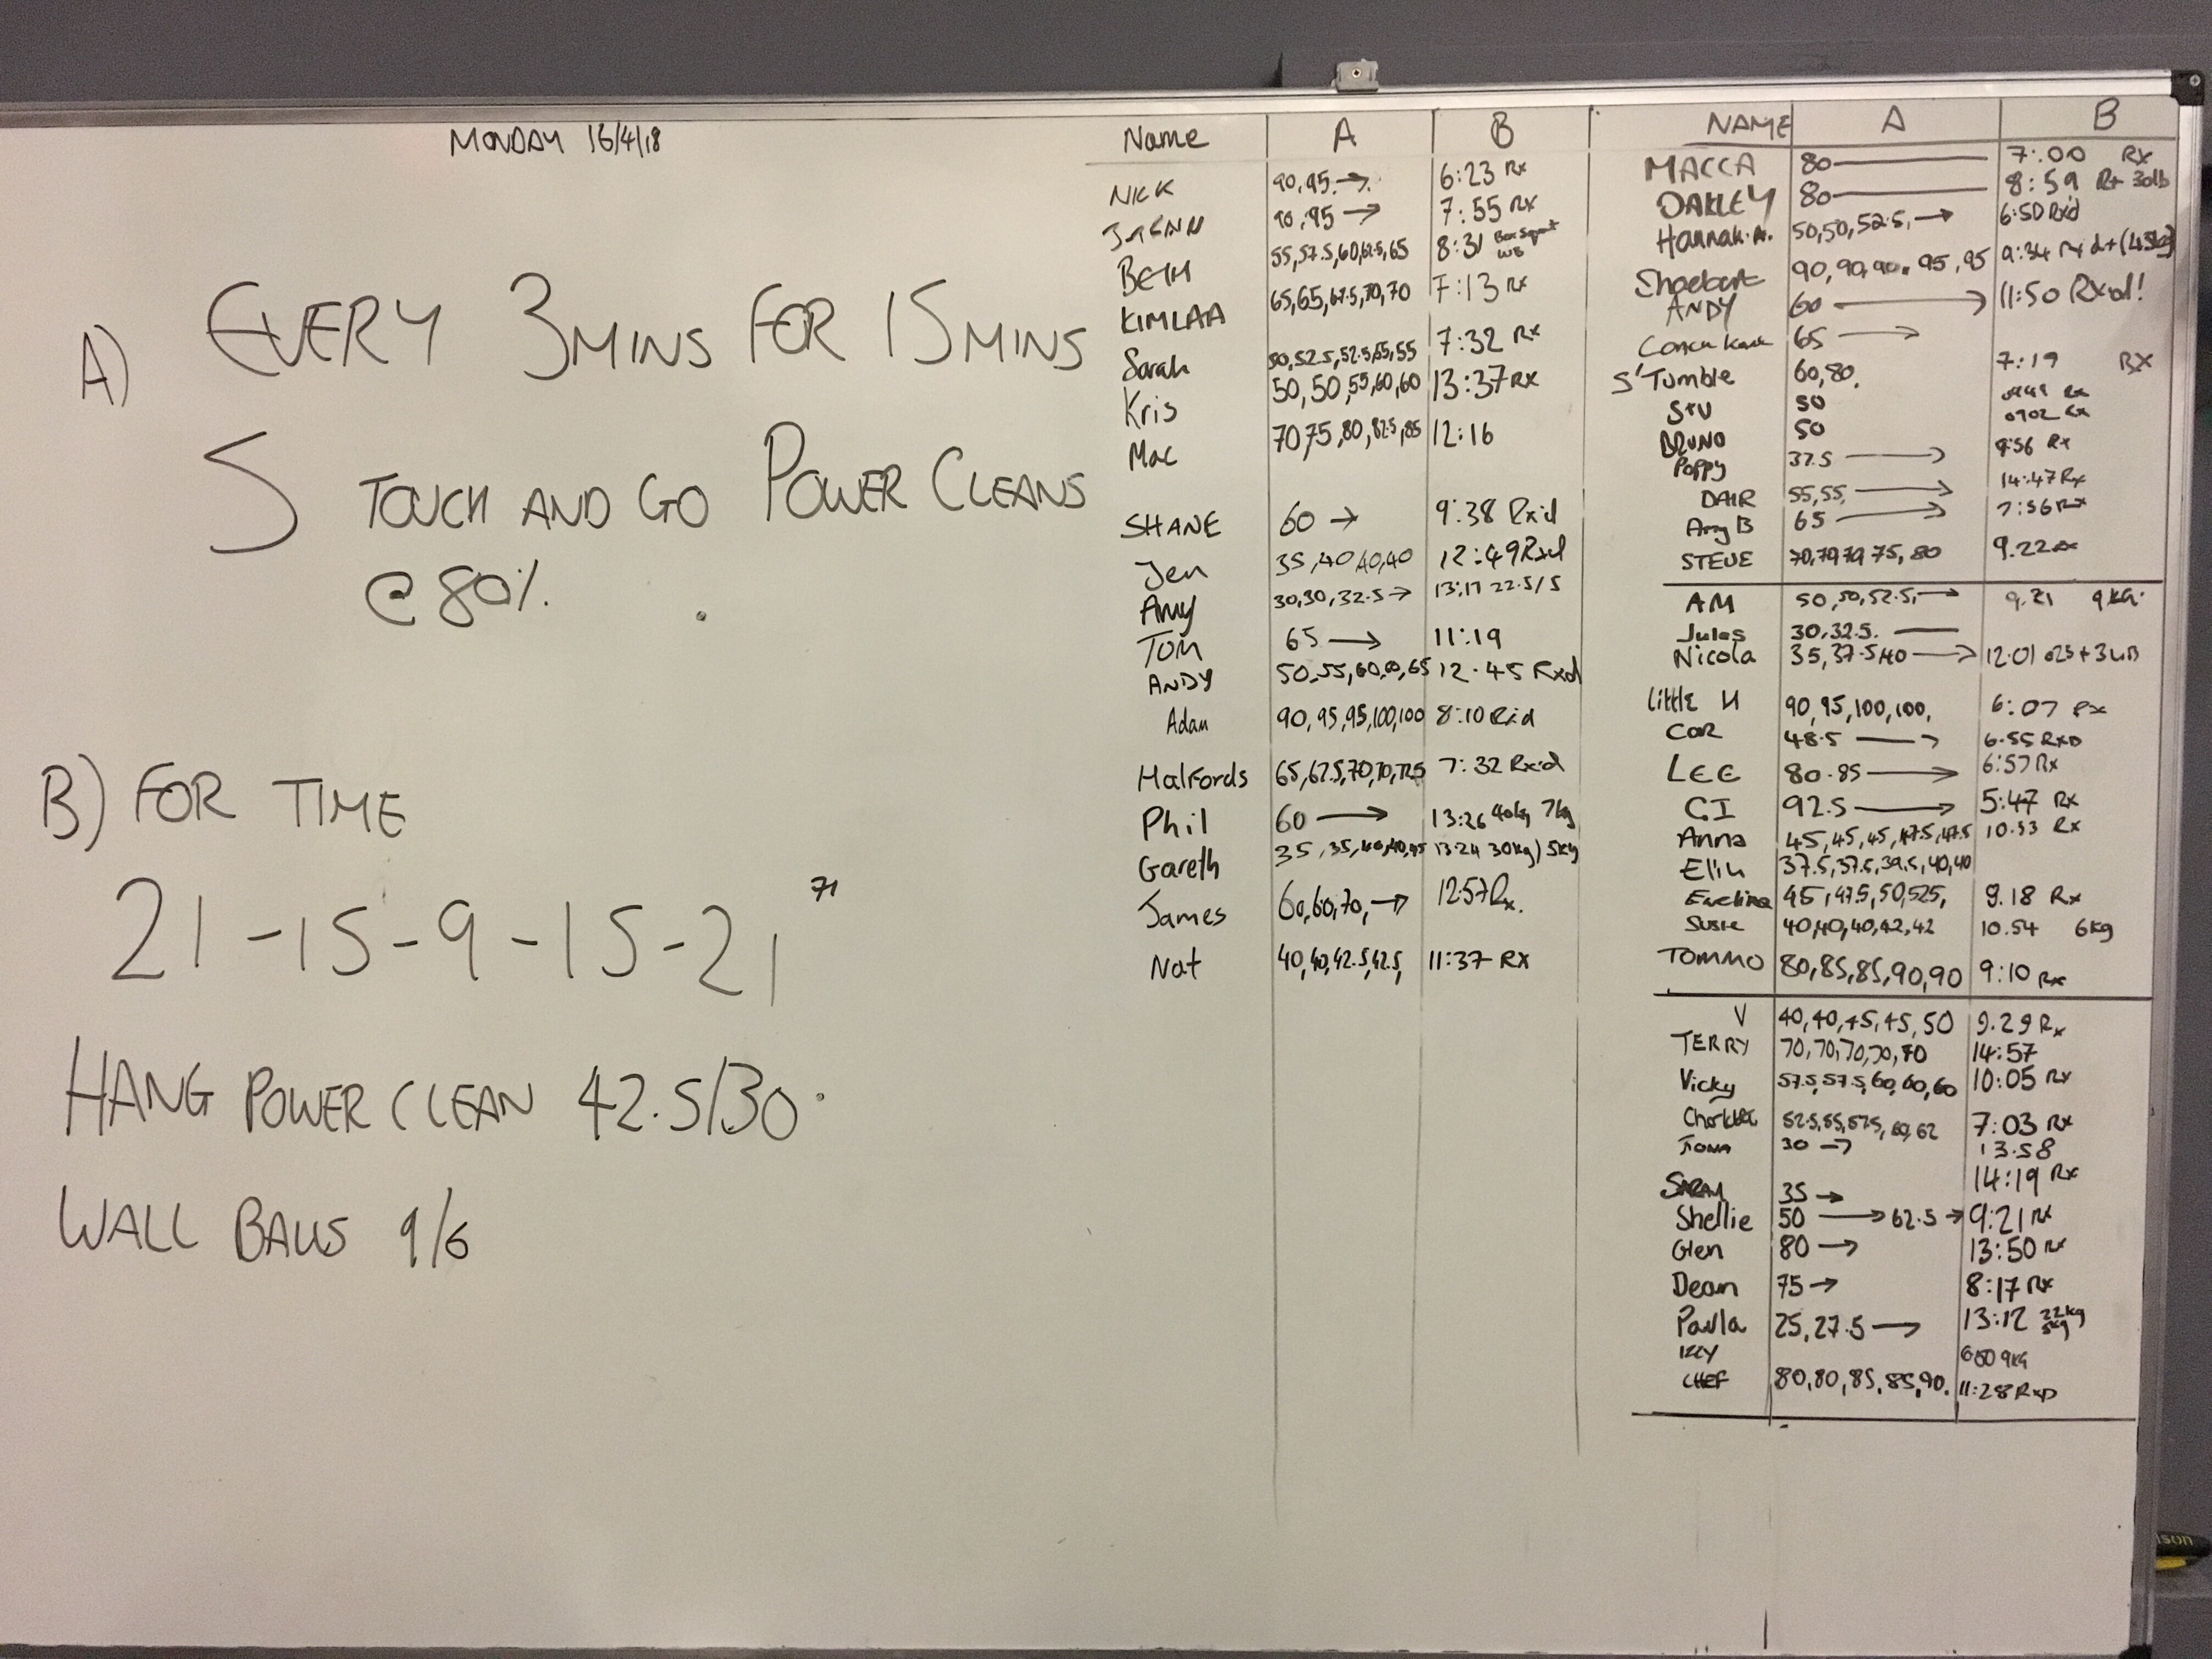 MONDAY 16/4/18
A) EVERY 3 MINS FOR 15 MINS
5 TOUCH AND GO POWER CLEANS
@ 80%
B) FOR TIME
21-15-9-15-21
71
HANG POWER CLEAN 42.5/30
WALL BALLS 9/6
Name A B
NICK 90,95 → 6:23 Rx
90,95 → 7:55 Rx
BETH 55,57.5,60,62.5,65 8:31 Box Squat WB
KIMLAA 65,65,67.5,70,70 7:13 Rx
Sarah 50,52.5,52.5,55,55 7:32 Rx
Kris 50,50,55,60,60 13:37 Rx
Mac 70,75,80,82.5,85 12:16
SHANE 60 → 9:38 Rx'd
Jen 35,40,40,40 12:49 Rxd
Amy 30,30,32.5 → 13:17 22.5/5
TOM 65 → 11:19
ANDY 50,55,60,60,65 12.45 Rxd
Adam 90,95,95,100,100 8:10 Rxd
Halfords 65,67.5,70,70,72.5 7:32 Rx'd
Phil 60 → 13:26 40kg 7kg
Gareth 35,35,40,40,45 13:24 30kg/5kg
James 60,60,70, → 12:57 Rx.
Nat 40,40,42.5,42.5, 11:37 RX
NAME A B
MACCA 80 — 7:00 RX
OAKLEY 80 — 8:59 Rx 30lb
Hannah.A. 50,50,52.5, → 6:50 Rxd
Shoebart 90,90,90,95,95 9:34 Rxd+(45kg)
ANDY 60 → 11:50 Rxd!
65 →
S'Tumble 60,80. 7:19 RX
STU 50 Rx
BRUNO 50 0902 Rx
Poppy 37.5 → 9:56 Rx
DAIR 55,55, → 14:47 Rx
Amy B 65 → 7:56 Rx
STEVE 70,70,70,75,80 9.22 Rx
AM 50,50,52.5, → 9.21 9KG
Jules 30,32.5. —
Nicola 35,37.5,40 → 12:01
Little H 90,95,100,100, 6:07 Rx
COR 48.5 → 6.55 RXD
LEE 80.85 → 6:57 Rx
CJ 92.5 → 5:47 Rx
Anna 45,45,45,47.5,47.5 10.53 Rx
Elin 37.5,37.5,39.5,40,40
Ewelina 45,47.5,50,52.5, 9.18 Rx
Susie 40,40,40,42,42 10.54 6kg
TOMMO 80,85,85,90,90 9:10 Rx
V 40,40,45,45,50 9.29 Rx
TERRY 70,70,70,70,70 14:57
Vicky 57.5,57.5,60,60,60 10:05 Rx
52.5,55,57.5,60,62 7:03 Rx
FIONA 30 → 13.58
SARAH 35 → 14:19 Rx
Shellie 50 → 62.5 → 9:21 Rx
Glen 80 → 13:50 Rx
Dean 75 → 8:17 Rx
Paula 25,27.5 → 13:12 22kg 5kg
IZZY 9KG
CHEF 80,80,85,85,90. 11:28 RXD